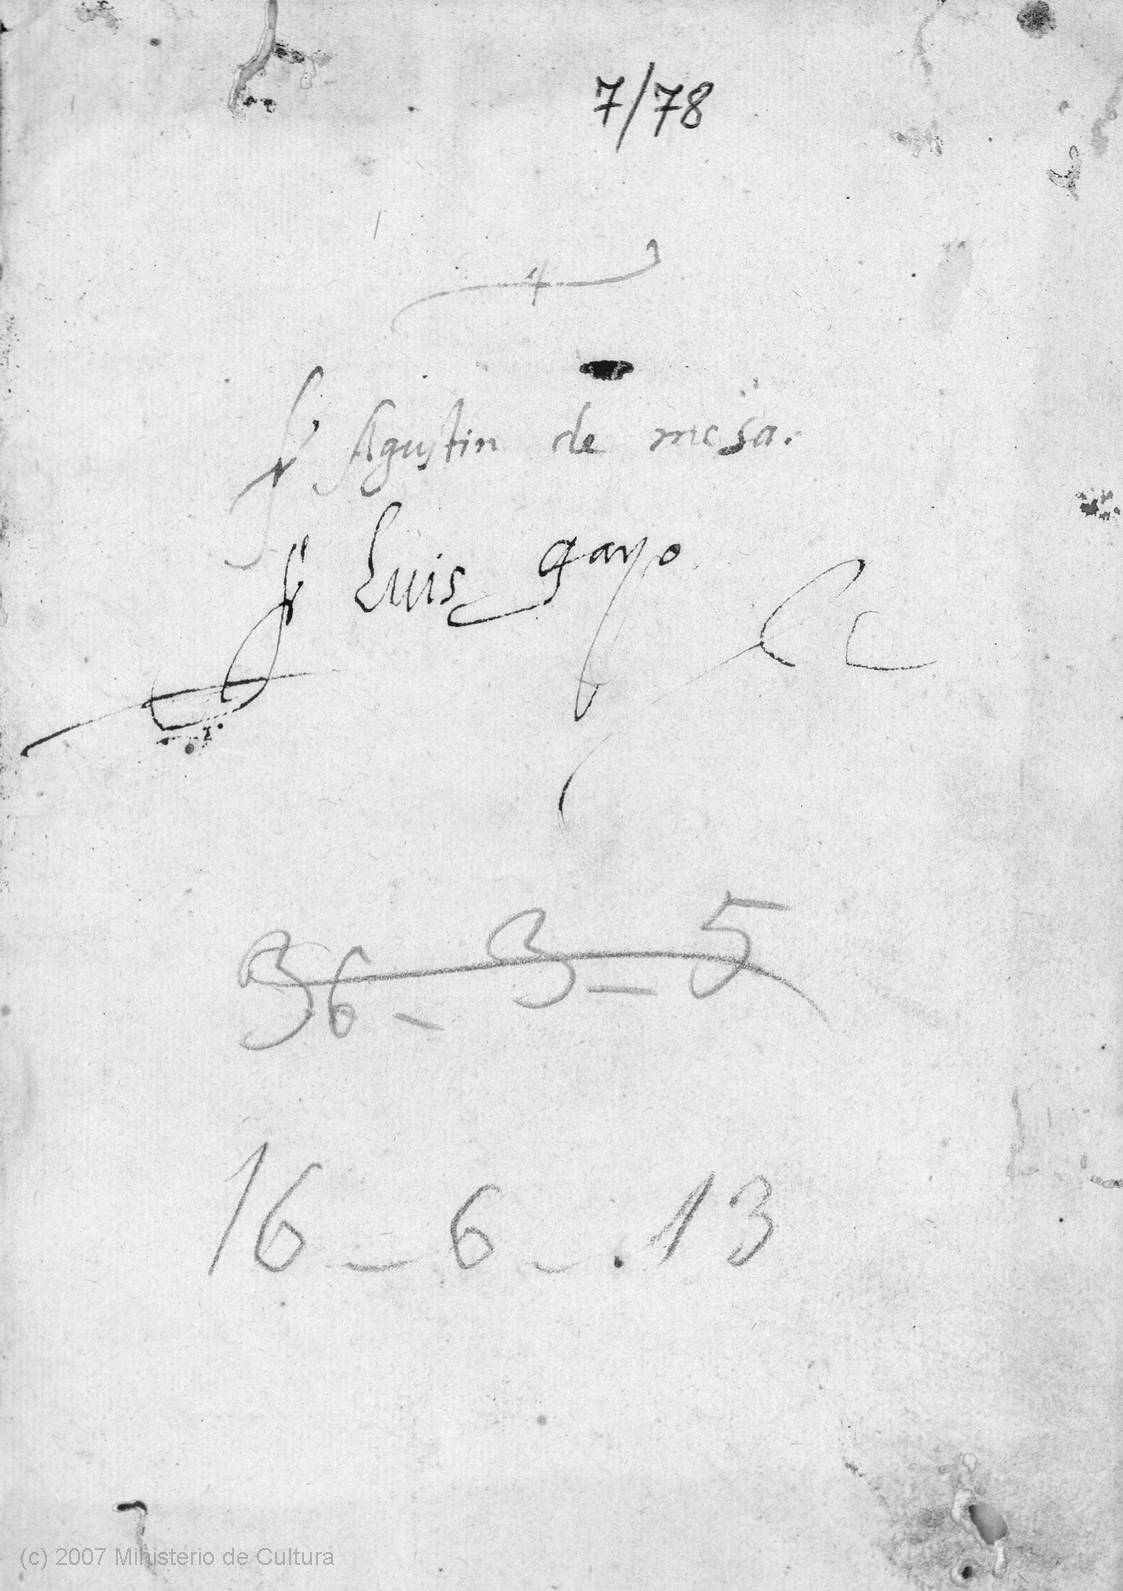 7/78
fr Agustin de mesa.
fr Luis gayo
36 - 3 - 5
16 - 6 - . 13
(c) 2007 Ministerio de Cultura